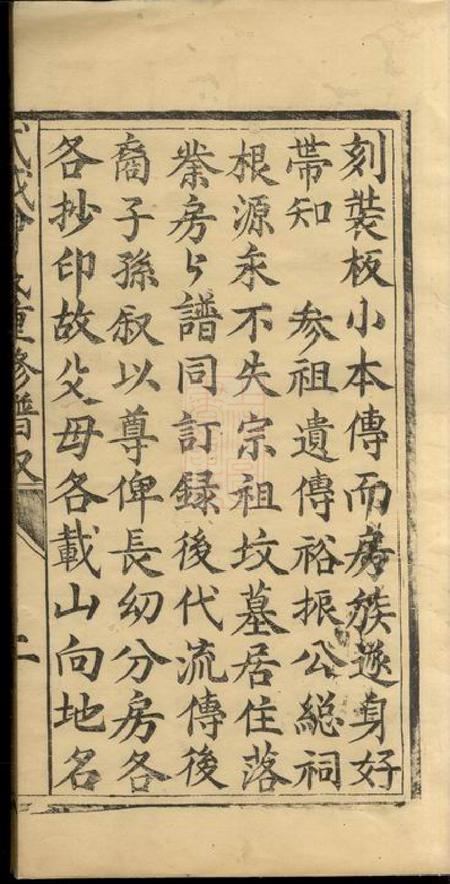 刻裝板小本傳而房族遂身好
帶知　參祖遺傳裕振公総祠
根源永不失宗祖坟墓居住落
業房与譜同訂録後代流傳後
裔子孫叙以尊俾長幼分房各
各抄印故父母各載山向地名
重修譜
二